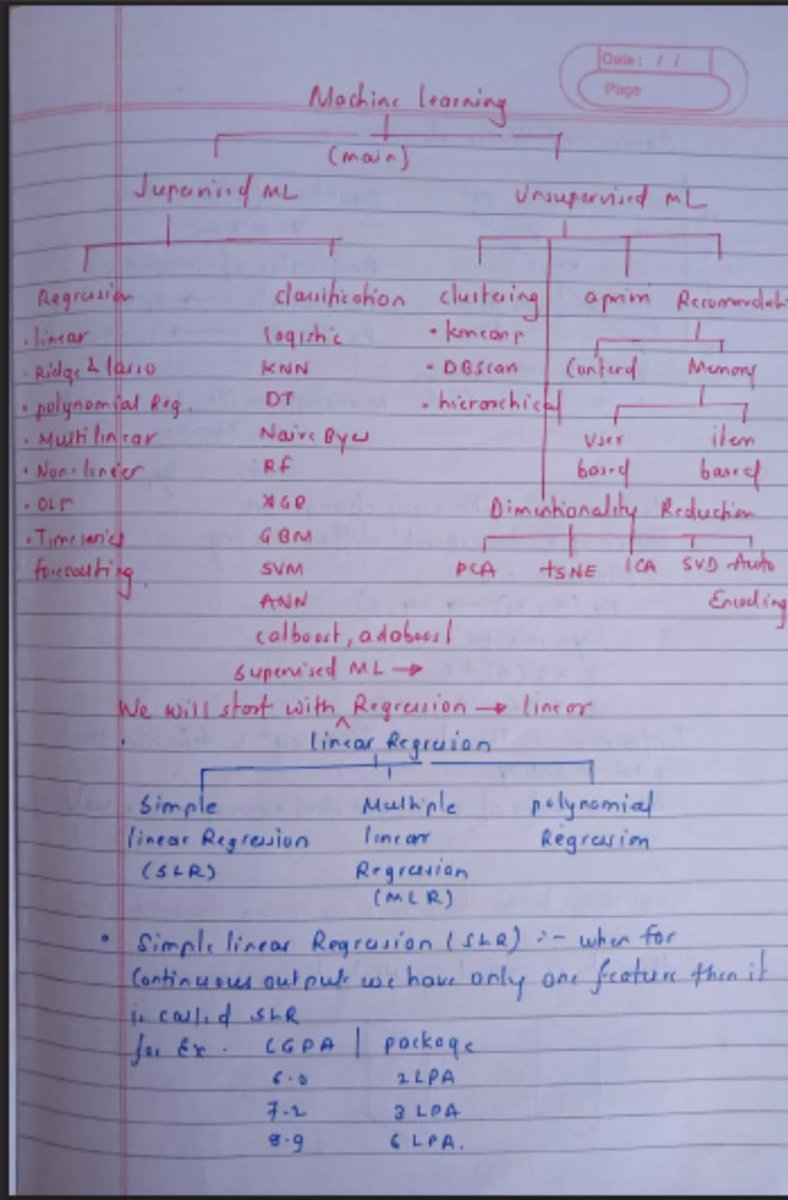 Date: / /
Page
Machine learning
(main)
Supervised ML Unsupervised ML
Regression classification clustering apriori Recommendat
. linear logistic • kmeans
. Ridge & lasso KNN • DBScan Contend Memory
. polynomial Reg. DT . hierarchical
. Multilinear Naive Byes user item
. Non-linear RF based based
. OLS XGB Dimentionality Reduction
. Timeseries GBM
forecasting. SVM PCA tSNE ICA SVD Auto
ANN Encoding
catboost, adaboost
Supervised ML →
We will start with Regression → linear
linear Regression
Simple Multiple polynomial
linear Regression linear Regression
(SLR) Regression
(MLR)
• Simple linear Regression (SLR) :- when for
Continuous output we have only one feature then it
is called SLR
for Ex. CGPA | package
6.0 2 LPA
7.2 3 LPA
8.9 6 LPA.